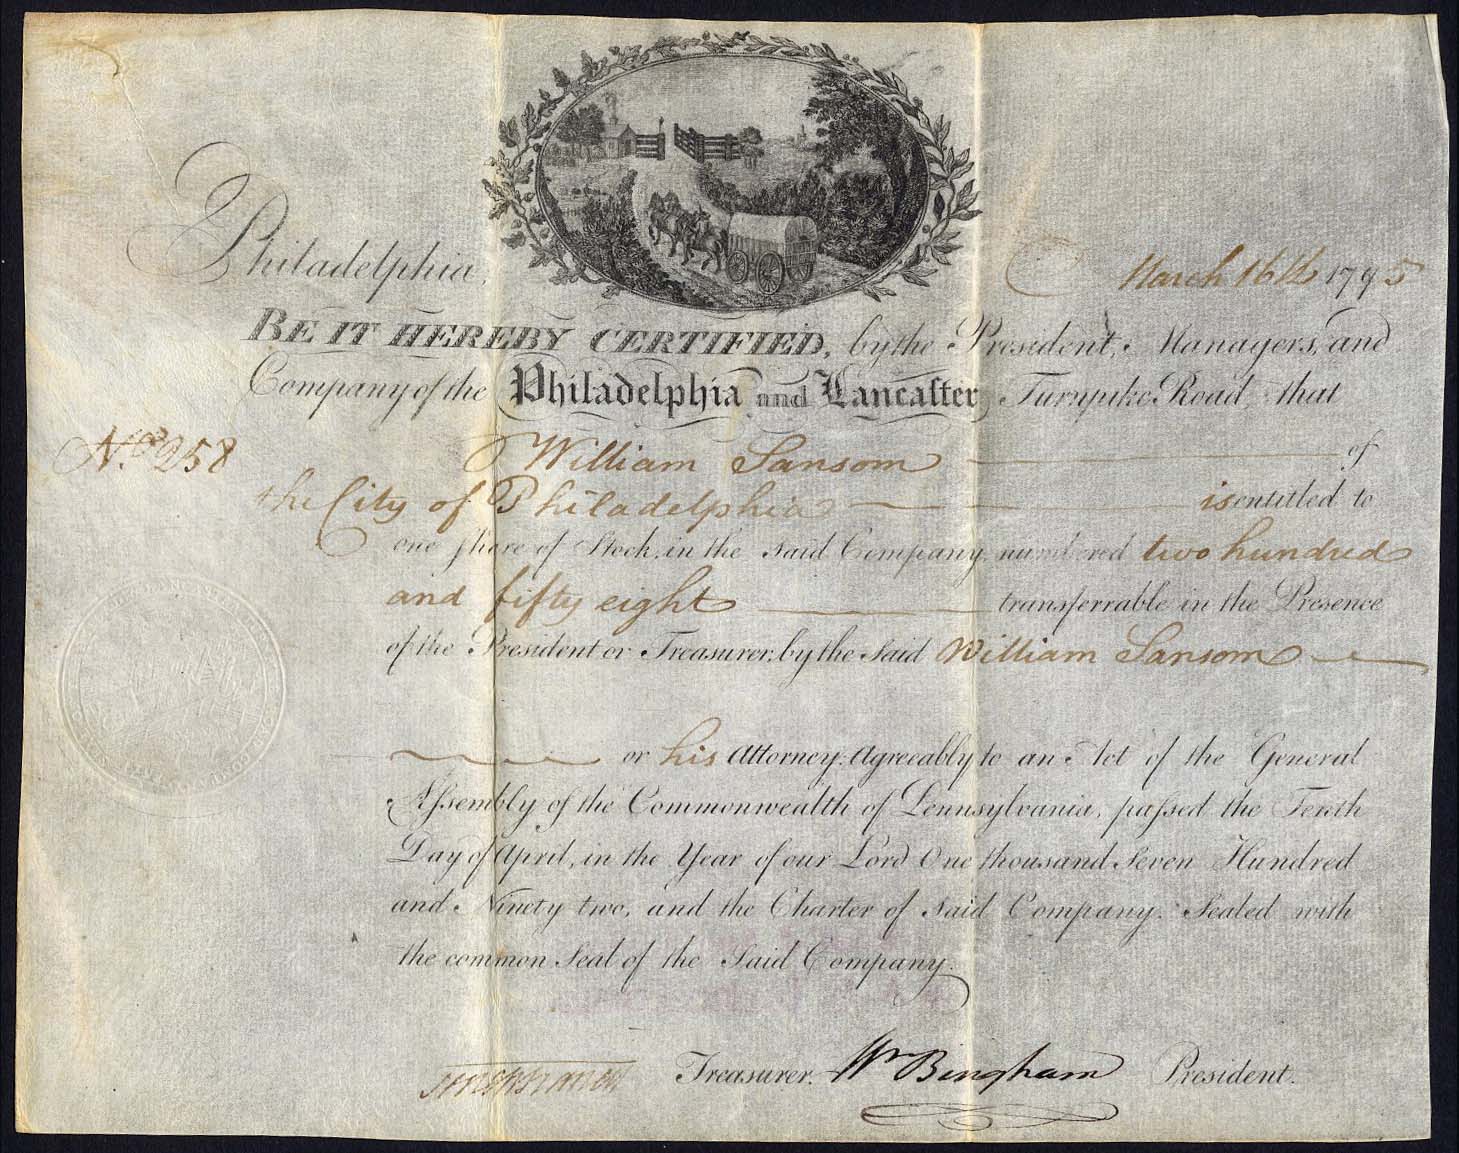 Philadelphia, March 16th 1795
BE IT HEREBY CERTIFIED, by the President, Managers, and
Company of the Philadelphia and Lancaſter Turnpike Road, that
No. 258
William Sansom of
the City of Philadelphia is entitled to
one ſhare of Stock, in the said Company, numbered two hundred
and fifty eight transferrable in the Presence
of the President or Treasurer, by the said William Sansom
or his Attorney. Agreeably to an Act of the General
Aſsembly of the Commonwealth of Pennsylvania, paſsed the Tenth
Day of April, in the Year of our Lord One thousand Seven Hundred
and Ninety two, and the Charter of said Company. Sealed with
the common Seal of the Said Company.
Treasurer. Wm Bingham President.